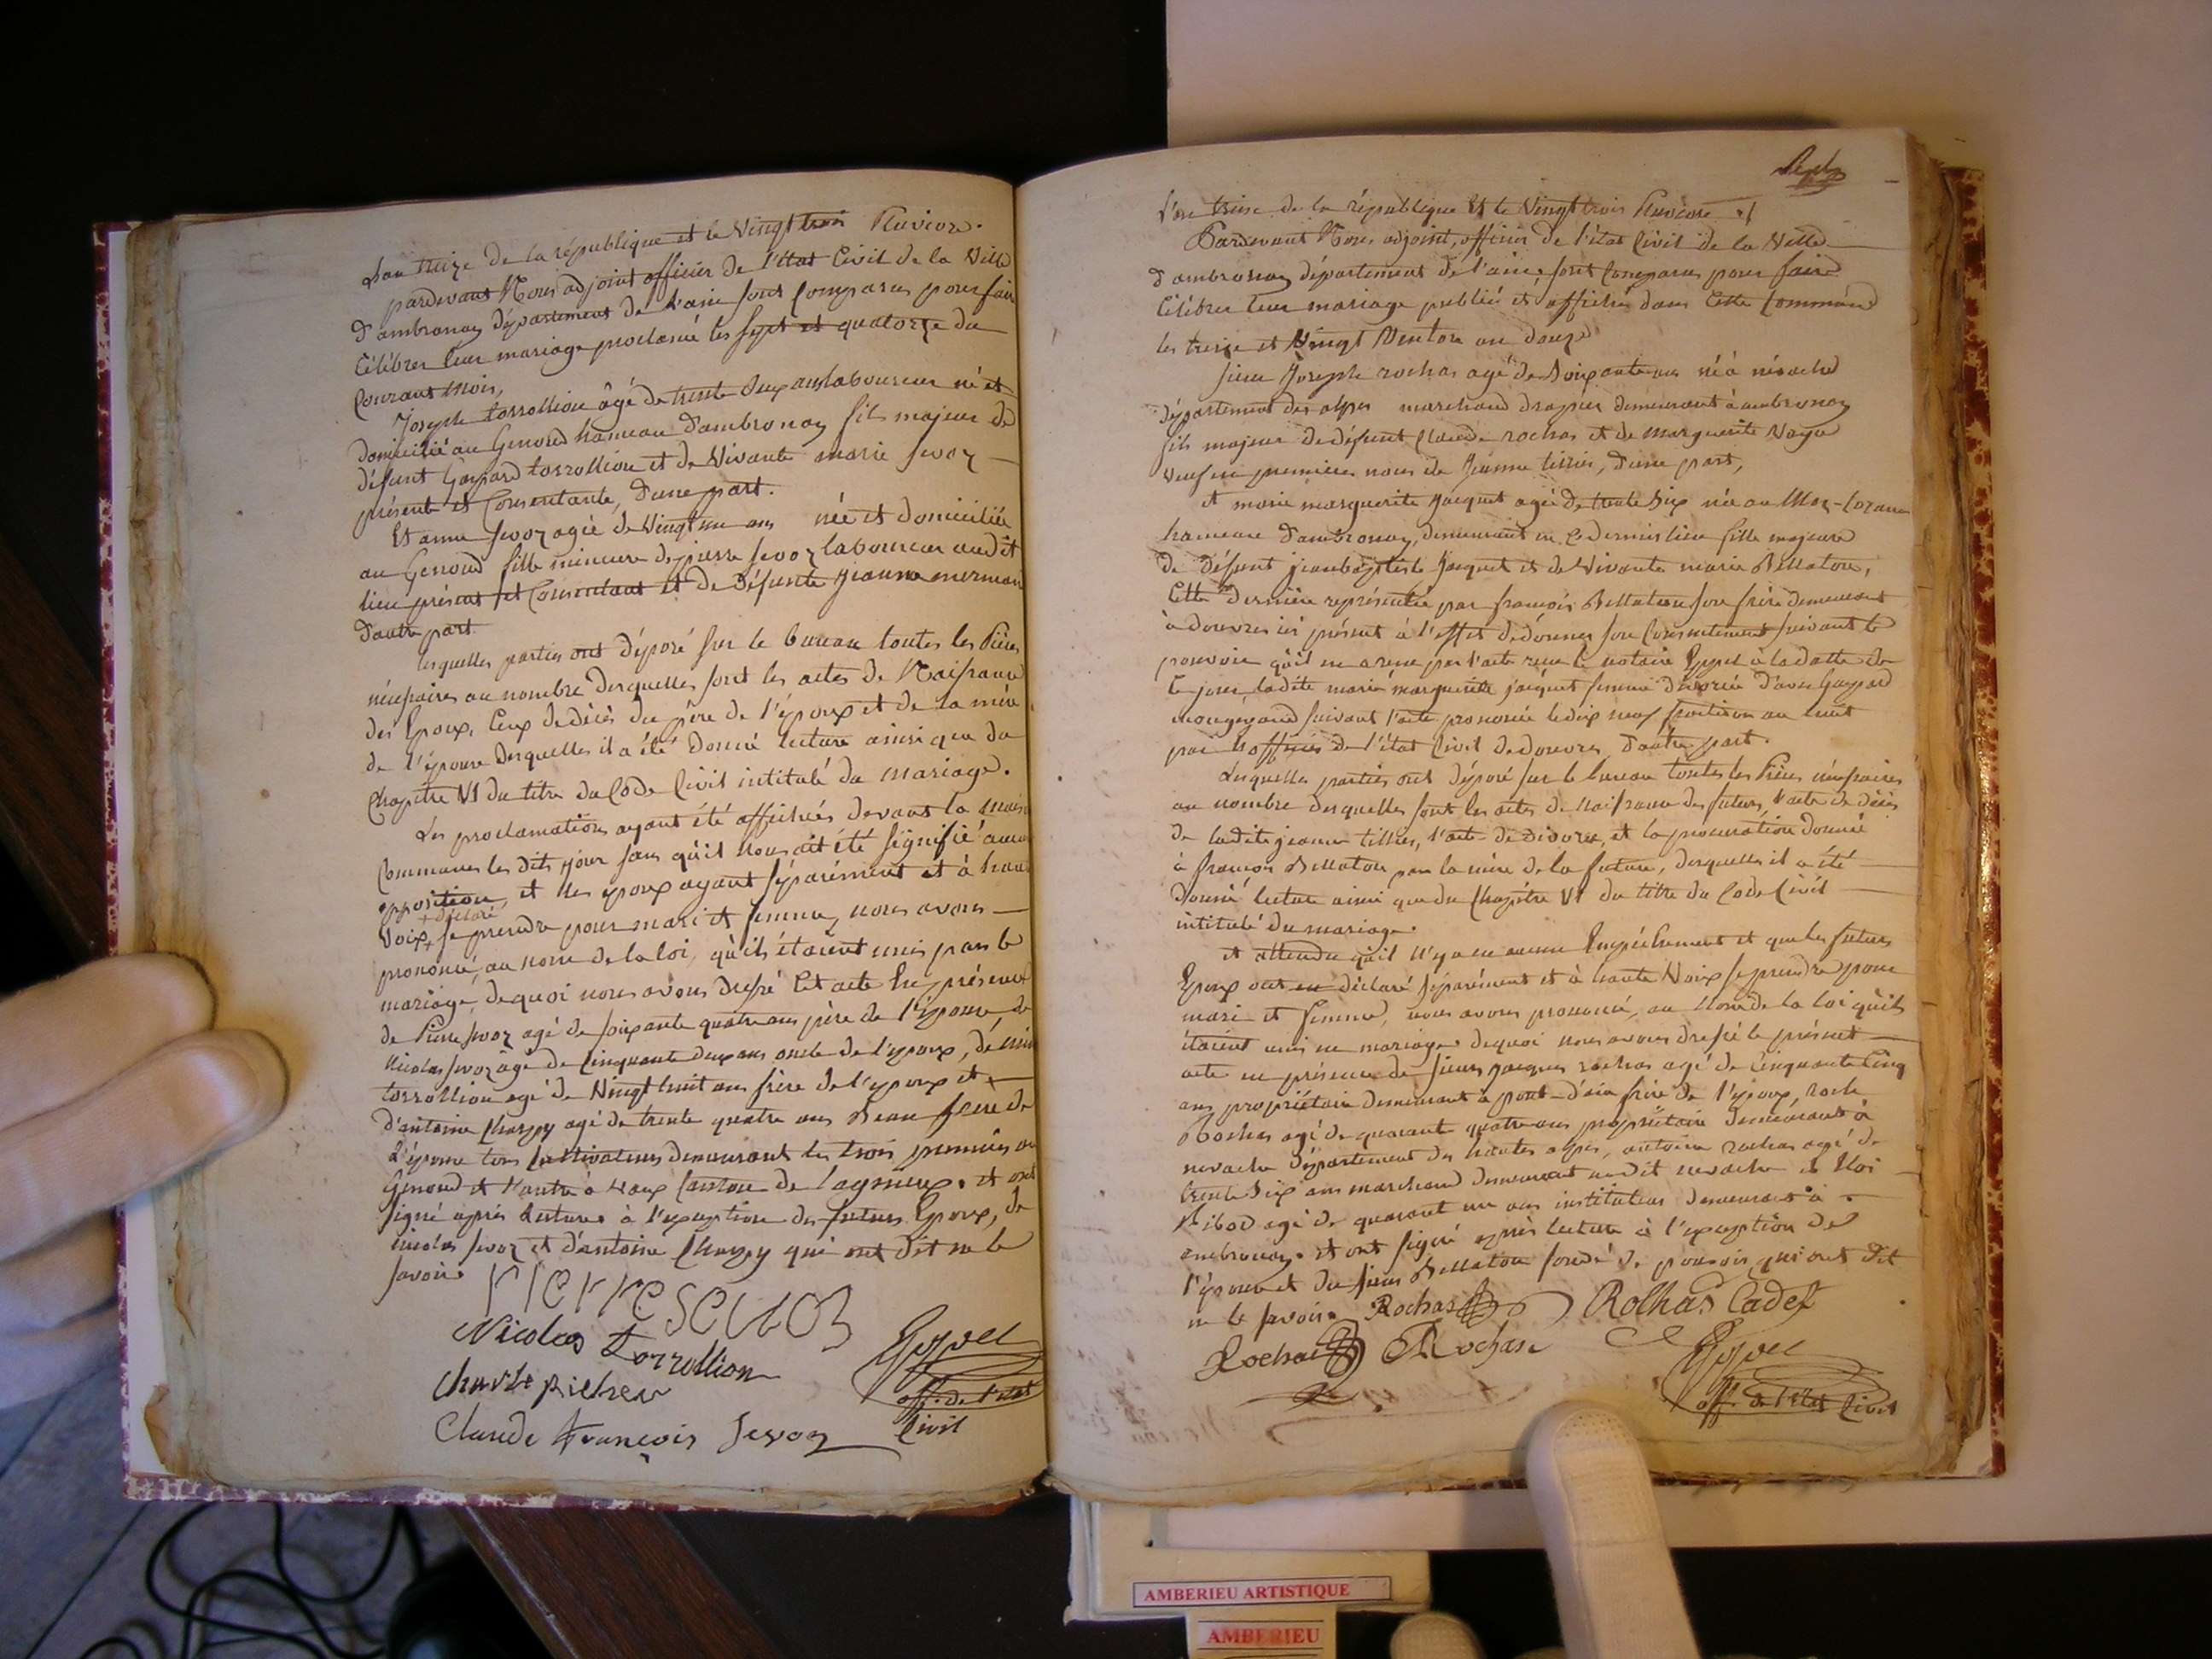 L'an treize de la république et le Vingt trois Pluviose.
pardevant Nous adjoint officier de l'état Civil de la Ville
d'ambronay département de l'ain sont Comparus pour fair
Célébrer leur mariage proclamé les sept et quatorze du
Courant mois,
Joseph torrollion âgé de trente deux ans laboureur né et
domicilié au Genoud hameau d'ambronay fils majeur de
défunt Gaspard torrollion et de Vivante marie sevoz
présente et Consentante, d'une part.
Et anne sevoz agée de Vingt un ans née et domiciliée
au Genoud fille mineure de pierre sevoz laboureur audit
lieu présent et Consentant et de défunte jeanne mermand
d'autre part.
lesquelles parties ont déposé sur le bureau toutes les Pièces
nécessaires au nombre desquelles sont les actes de Naissance
des Epoux, Ceux de décès du père de l'époux et de la mère
de l'épouse desquelles il a été donné lecture ainsi que du
Chapitre VI du titre du Code Civil intitulé du mariage.
Les proclamations ayant été affichées devant la maison
Commune les dits jour sans qu'il nous ait été signifié aucune
opposition, et les époux ayant séparément et à haute
+ déclaré
Voix + se prendre pour mari et femme, nous avons
prononcé, au nom de la loi, qu'ils étaient unis par le
mariage, de quoi nous avons dressé Cet acte En présence
de Pierre sevoz agé de soixante quatre ans père de l'épouse, de
Nicolas sevoz âgé de Cinquante deux ans oncle de l'epoux, de
torrollion agé de Vingt huit ans frère de l'epoux et
d'antoine Charpy agé de trente quatre ans Beau frere de
L'épouse tous Cultivateurs demeurant les trois premiers au
Genoud et l'autre a Vaux Canton de lagnieux. et ont
signé après Lecture à l'exception des futurs Epoux, de
nicolas sevoz et d'antoine Charpy qui ont dit ne le
savoir.
Pierre sevoz
Nicolas Torrollion
Claude François Sevoz
Eypel
off. de l'état
Civil
L'an treize de la république Et le Vingt trois Pluviose
Pardevant Nous adjoint, officier de l'état Civil de la Ville
d'ambronay département de l'ain, sont Comparus pour faire
Célébrer leur mariage publié et affiché dans Cette Commune
les treize et Vingt Ventose an douze
sieur Joseph rochas agé de soixante ans né à névache
département des alpes marchand drapier demeurant à ambronay
fils majeur de défunt Claude rochas et de marguerite
Veuf en premieres noces de Jeanne tillier, d'une part,
et marie marguerite jacquet agée de trente six née au
hameau d'ambronay, demeurant en Ce dernier lieu fille majeure
de défunt jean baptiste jacquet et de Vivante marie Bellaton,
Cette dernière représentée par françois Bellaton son frère demeurant
à douvres ici présent à l'effet de donner son Consentement suivant le
pouvoir qu'il en a reçu par l'acte reçu le notaire Eypel à la datte de
Ce jour, ladite marie marguerite jacquet femme divorcée d'avec Gaspard
suivant l'acte prononcé le dix neuf fructidor an huit
par l'officier de l'état Civil de douvres, d'autre part.
Lesquelles parties ont déposé sur le bureau toutes les Pièces nécessaires
au nombre desquelles sont les actes de naissance des futurs, l'acte de décès
de ladite jeanne tillier, l'acte de divorce, et la procuration donnée
à françois Bellaton par la mère de la future, desquelles il a été
donné lecture ainsi que du Chapitre VI du titre du Code Civil
intitulé du mariage.
et attendu qu'il n'y a eu aucun Empêchement et que les futurs
Epoux ont en déclaré séparément et à haute Voix se prendre pour
mari et femme, nous avons prononcé, au Nom de la loi qu'ils
étaient unis en mariage. de quoi nous avons dressé le présent
acte en présence de sieurs jacques rochas agé de Cinquante Cinq
ans propriétaire demeurant à pont-d'ain frère de l'époux, roch
Rochas agé de quarante quatre ans propriétaire demeurant à
nevache département des hautes alpes, antoine rochas agé de
trente six ans marchand demeurant audit nevache et
agé de quarante un ans instituteur demeurant à
ambronay. et ont signé après lecture à l'exception de
l'épouse et du sieur Bellaton fondé de pouvoir qui ont dit
ne le savoir. Rochas Rolhas Cadet
Rochas Rochas
Eypel
off. de l'état Civil
AMBERIEU ARTISTIQUE
AMBERIEU